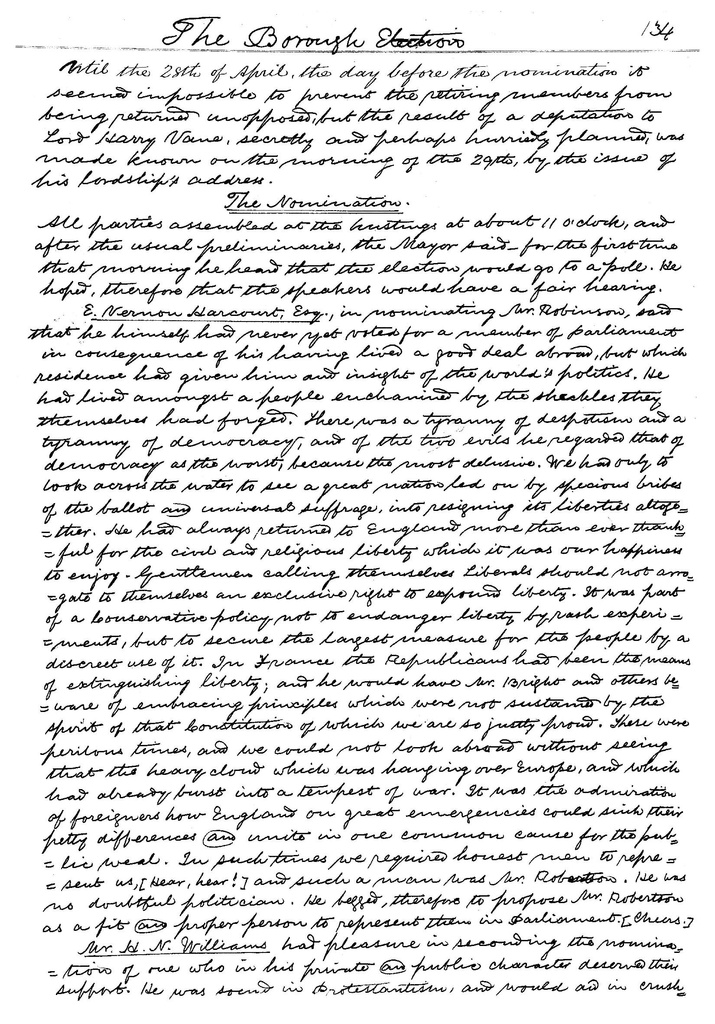 The Borough Election
134
Until the 28th of April, the day before the nomination it
seemed impossible to prevent the retiring members from
being returned unopposed, but the result of a deputation to
Lord Harry Vane, secretly and perhaps hurriedly planned, was
made known on the morning of the 29th, by the issue of
his lordship's address.
The Nomination.
All parties assembled at the hustings at about 11 o'clock, and
after the usual preliminaries, the Mayor said - for the first time
that morning he heard that the election would go to a poll. He
hoped, therefore that the speakers would have a fair hearing.
E. Vernon Harcourt, Esq., in nominating Mr. Robinson, said
that he himself had never yet voted for a member of parliament
in consequence of his having lived a good deal abroad, but which
residence had given him and insight of the world's politics. He
had lived amongst a people enchained by the sheckles they
themselves had forged. There was a tyranny of despotism and a
tyranny of democracy, and of the two evils he regarded that of
democracy as the worst, because the most delusive. We had only to
look across the water to see a great nation led on by specious bribes
of the ballot and universal suffrage, into resigning its liberties altoge=
=ther. He had always returned to England more than ever thank=
=ful for the civil and religious liberty which it was our happiness
to enjoy. Gentlemen calling themselves Liberals should not arro=
=gate to themselves an exclusive right to expound liberty. It was part
of a Conservative policy not to endanger liberty by rash experi=
=ments, but to secure the largest measure for the people by a
discreet use of it. In France the Republicans had been the means
of extinguishing liberty; and he would have Mr. Bright and others be=
=ware of embracing principles which were not sustained by the
spirit of that Constitution of which we are so justly proud. These were
perilous times, and we could not look abroad without seeing
that the heavy cloud which was hanging over Europe, and which
had already burst into a tempest of war. It was the admiration
of foreigners how England on great emergencies could sink their
petty differences and unite in one common cause for the pub=
=lic weal. In such times we required honest men to repre=
=sent us, [Hear, hear!] and such a man was Mr. Robertson. He was
no doubtful politician. He begged, therefore to propose Mr. Robertson
as a fit and proper person to represent them in Parliament. [Cheers.]
Mr. H. N. Williams had pleasure in seconding the nomina=
=tion of one who in his private and public character deserved their
support. He was sound in Protestantism, and would aid in crush=